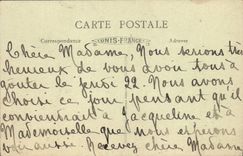 CARTE POSTALE
Correspondance COMIS-FRANCE Adresse
Chère Madame, Nous serions très
heureux de vous avoir tous à
gouter le jeudi 22. Nous avons
choisi ce jour pensant qu'il
conviendrait à Jacqueline et à
Mademoiselle que nous espérons
voir aussi. Recevez chère Madame